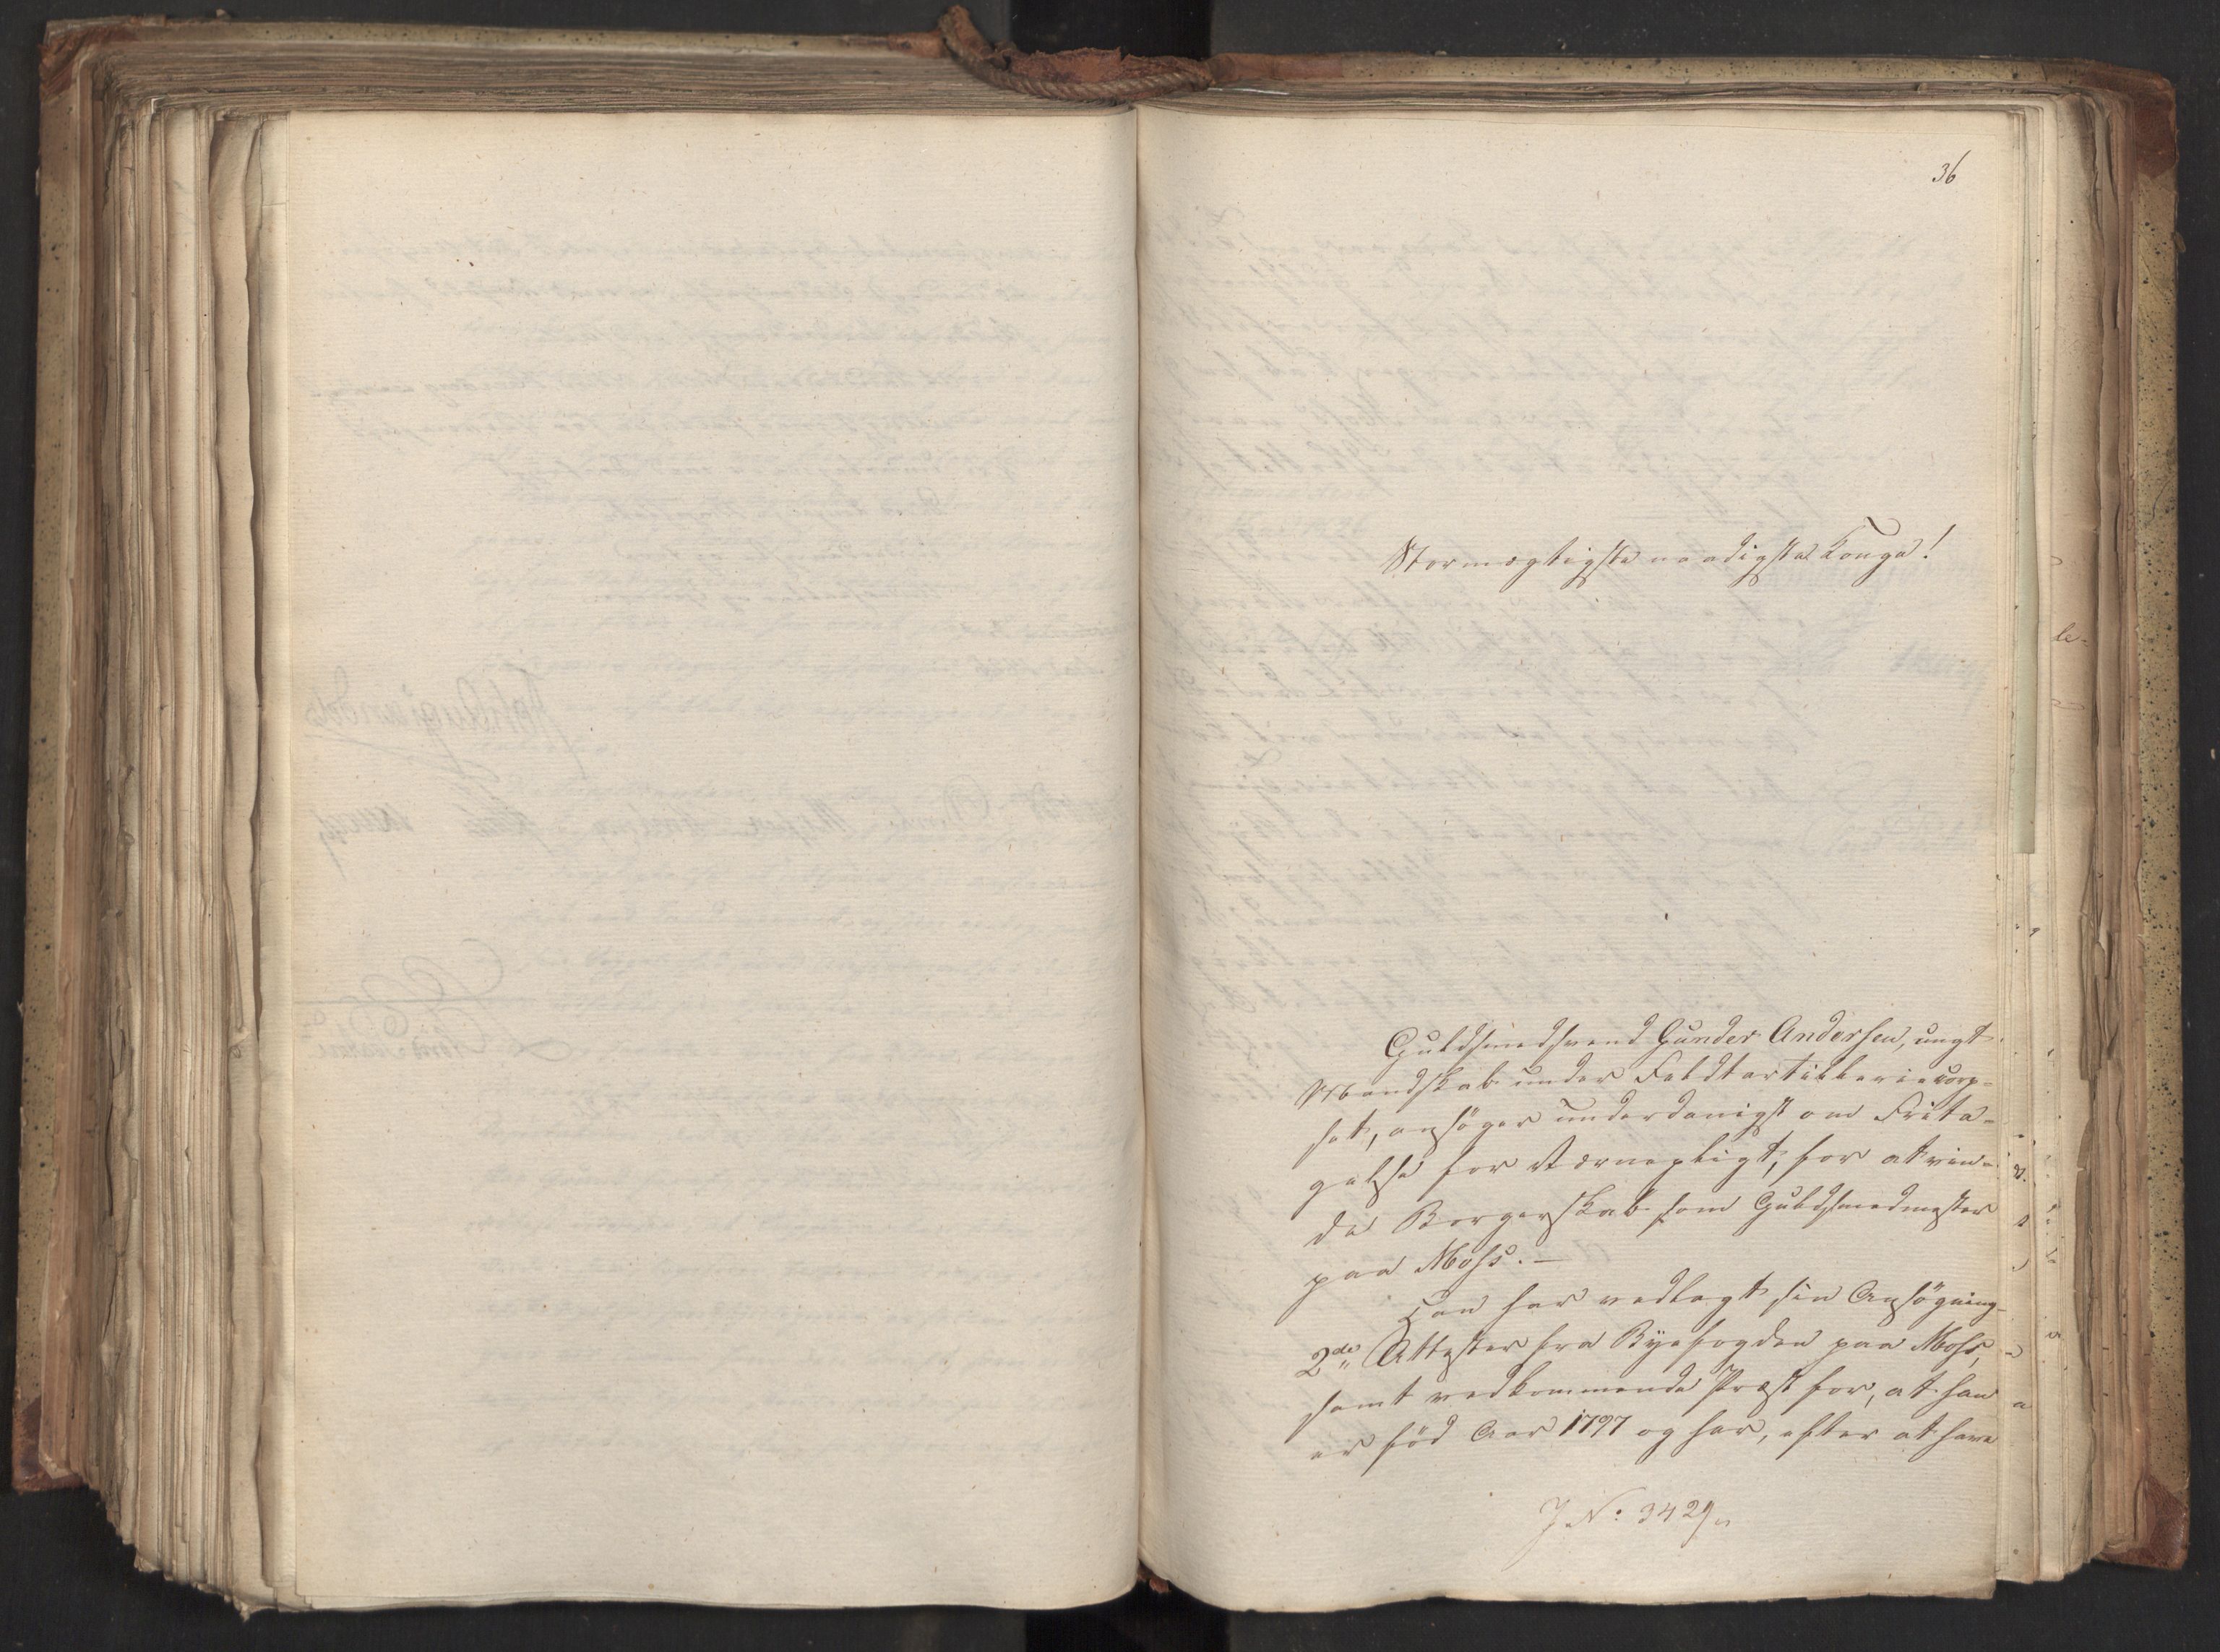 36
Stormægtigste naadigste Konge!
Guldsmedsvend Gunder Andersen, ungt
Mandskab under Feldtartilleriecorp-
set, ansöger underdanigst om Frita-
gelse for Værnepligt, for at vin-
de Borgerskab som Guldsmedmester
paa Moss. —
Han har vedlagt sin Ansögning
2de Attester fra Byefogden paa Moss,
samt vedkommende Præst for, at han
er föd Aar 1797 og har, efter at have
J. No: 3429